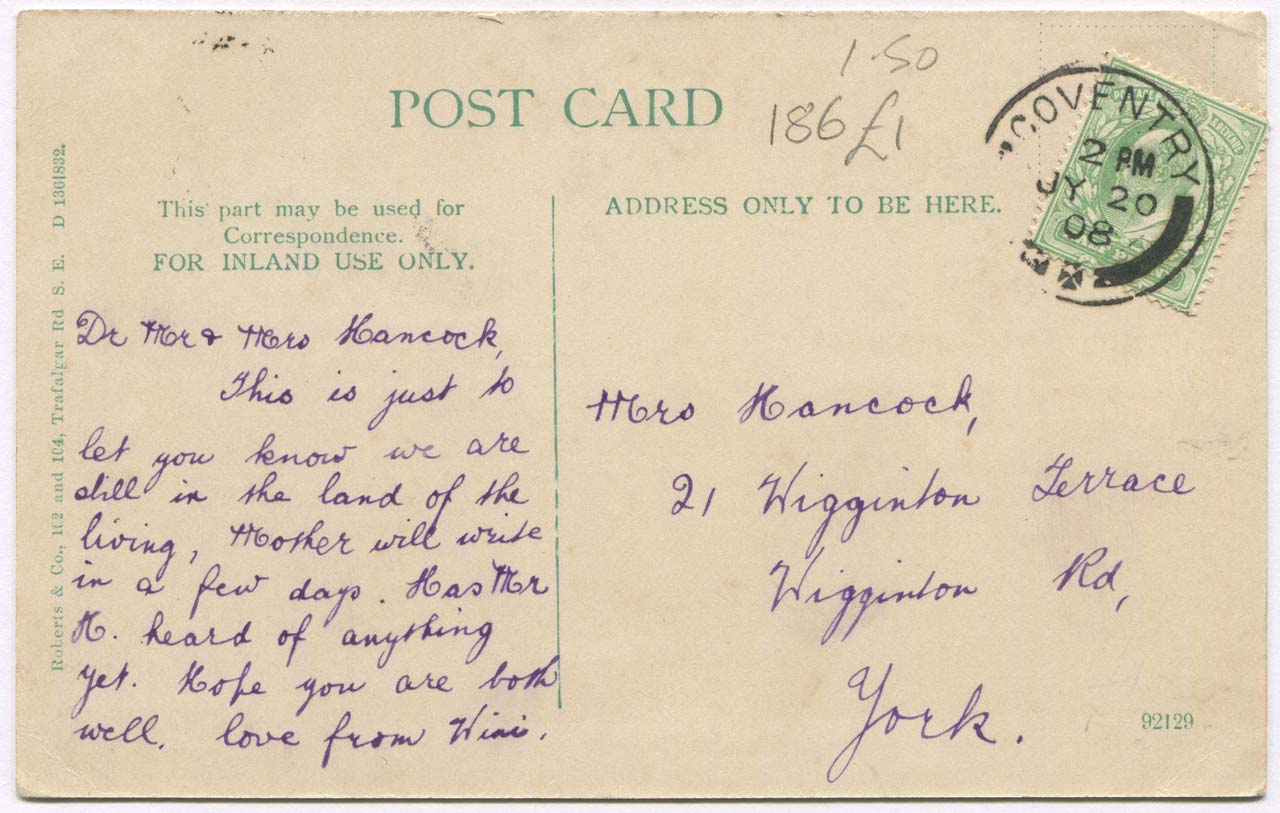 1.50
186 £1
POST CARD
This part may be used for
Correspondence.
FOR INLAND USE ONLY.
ADDRESS ONLY TO BE HERE.
COVENTRY
2 PM
JY 20
08
Roberts & Co., 102 and 104, Trafalgar Rd S. E. D 1361832.
Dr Mr & Mrs Hancock,
This is just to
let you know we are
still in the land of the
living, Mother will write
in a few days. Has Mr
H. heard of anything
yet. Hope you are both
well. love from Wini.
Mrs Hancock,
21 Wigginton Terrace
Wigginton Rd,
York.
92129